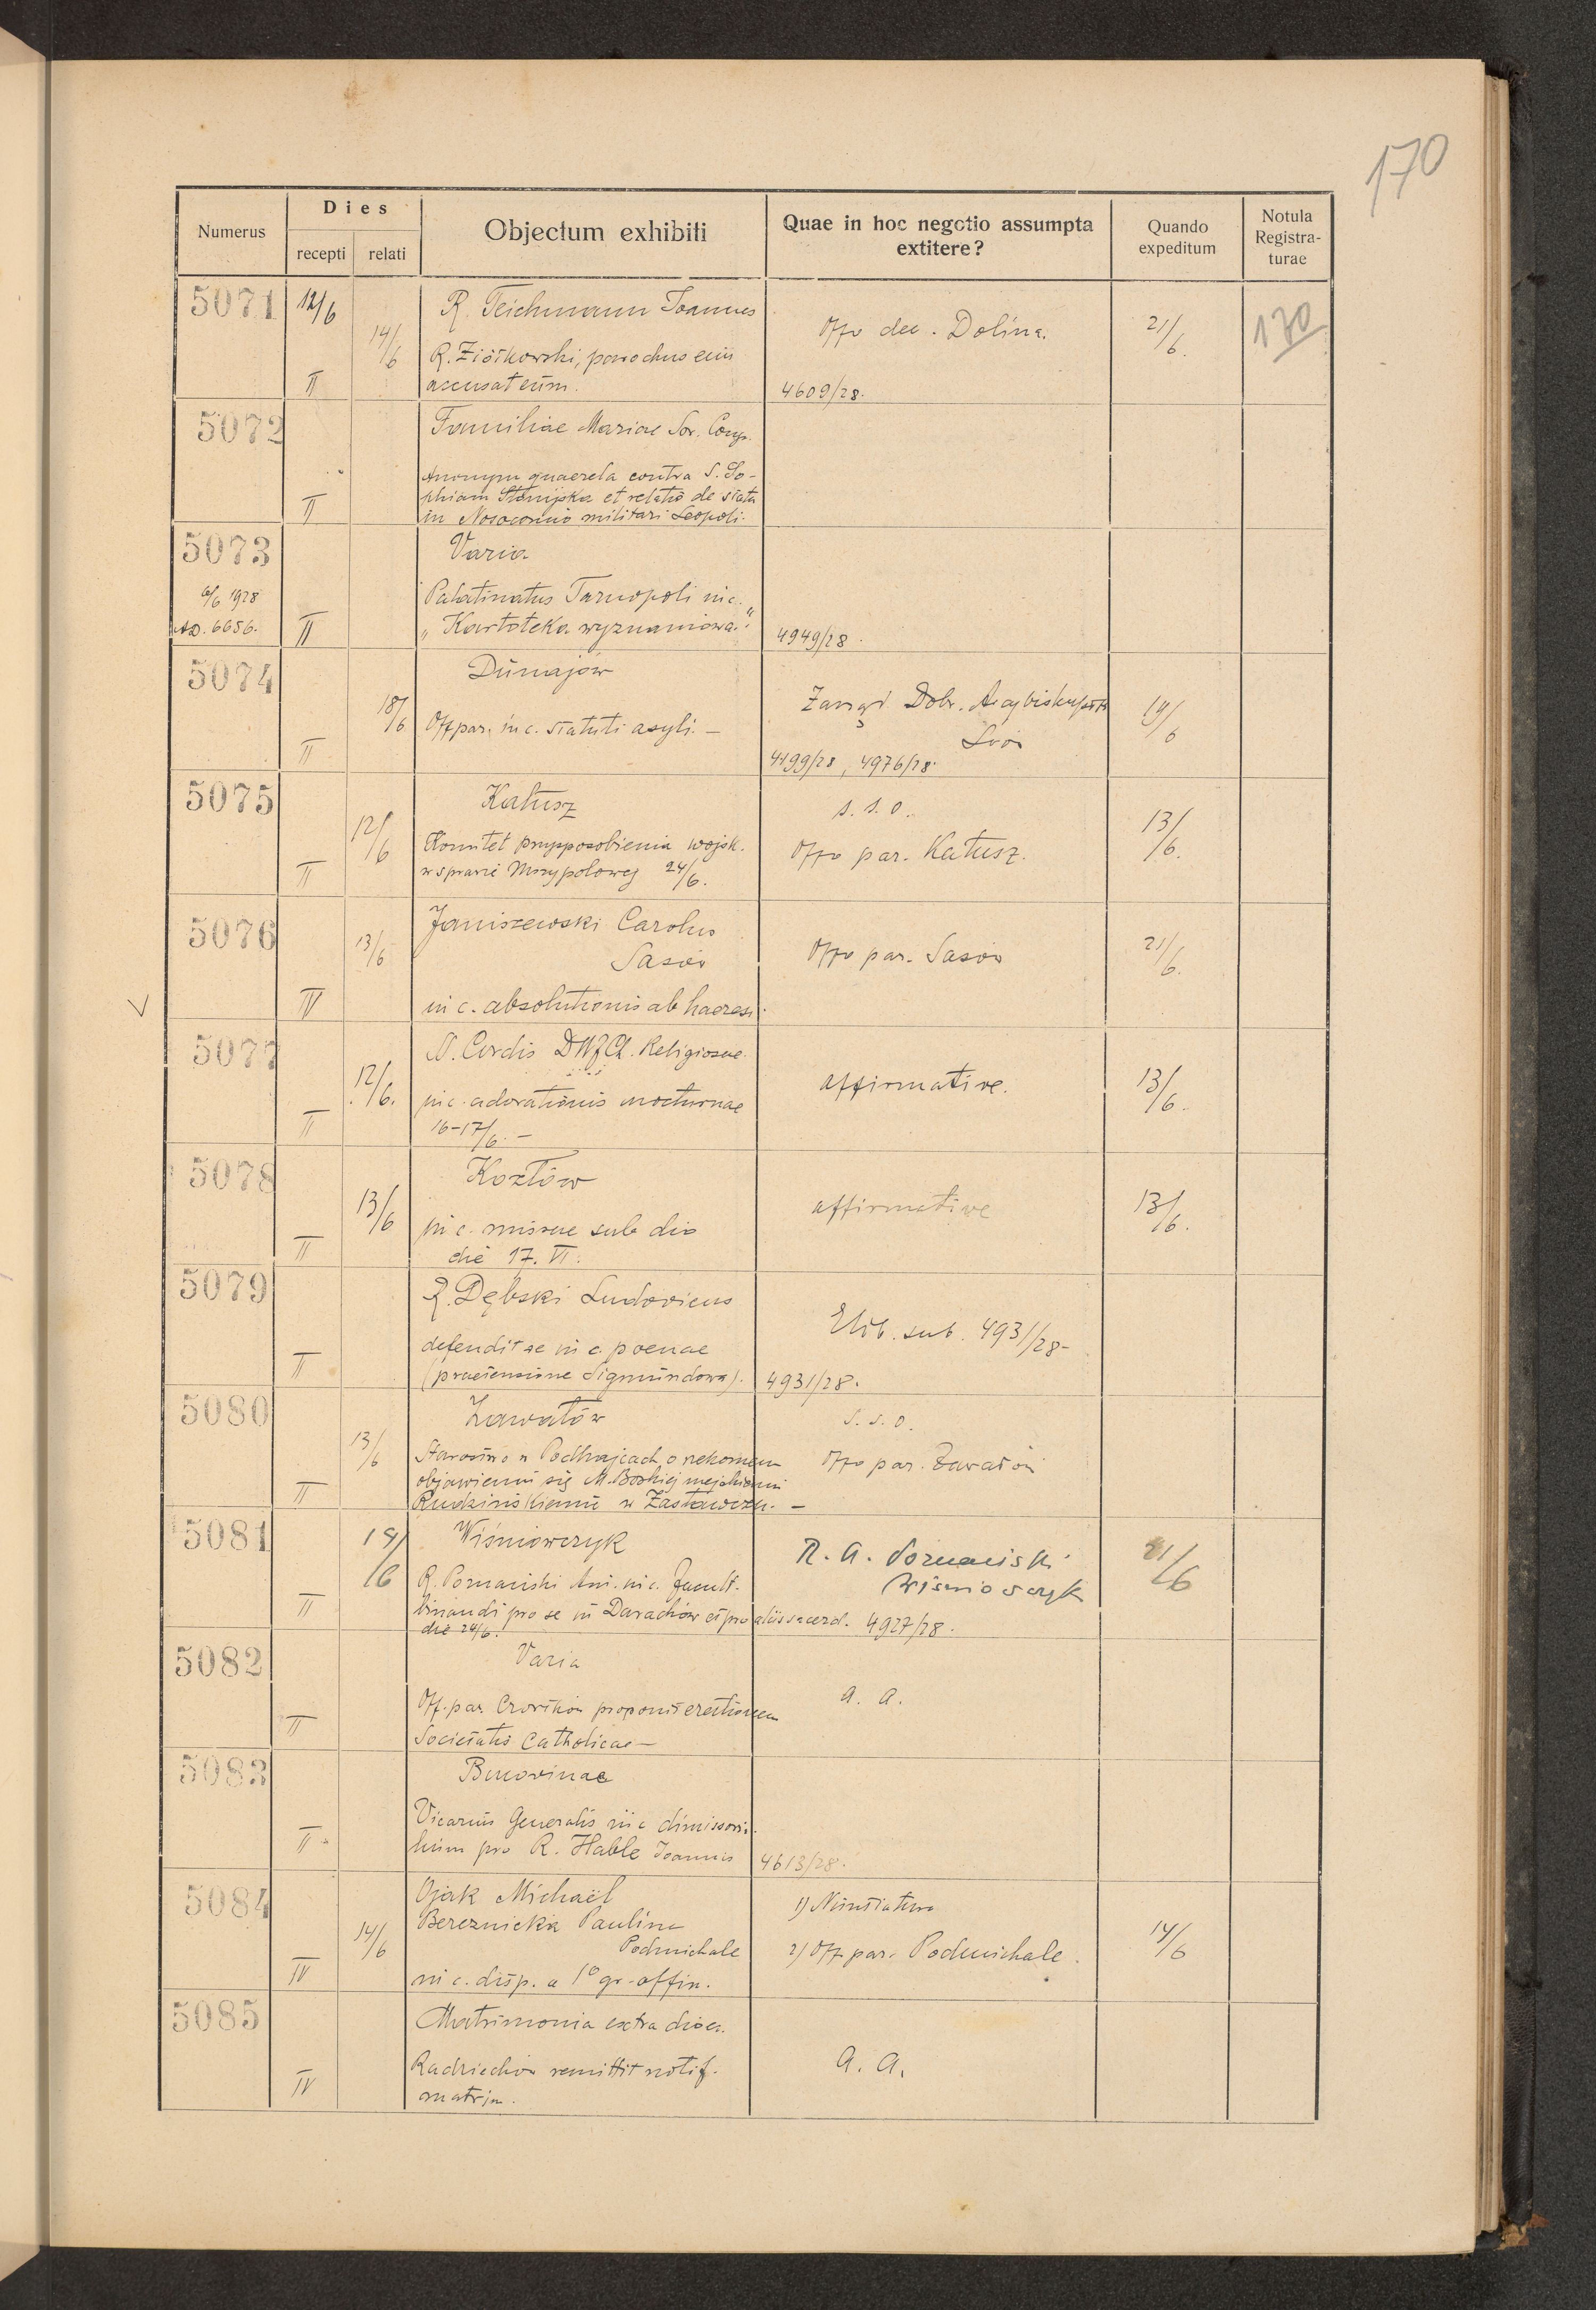 170
Numerus
Dies
recepti
relati
Objectum exhibiti
Quae in hoc negotio assumpta
extitere?
Quando
expeditum
Notula
Registra-
turae
5071
12/6
14/6
II
R. Teichmann Joannes
R. Ziółkowski, parochus eum
accusat eum.
Offo dec. Dolina.
4609/28.
21/6.
170
5072
II
Familiae Mariae Sor. Cong.
Anonym quaerela contra S. So-
phiam et relatio de statu
in Nosocomio militari Leopoli.
5073
6/6 1928
AD. 6656.
II
Varia
Palatinatus Tarnopoli in c.
„Kartoteka wyznaniowa."
4949/28.
5074
18/6
II
Dunajów
Off par. in c. statuti asyli. –
Zarząd Dobr. Arcybiskupstw
Lwów
4199/28, 4976/28.
19/6
5075
12/6
II
Kałusz
Komitet przysposobienia wojsk.
w sprawie Mszy polowej 24/6.
s. s. o.
Offo par. Kałusz.
13/6.
5076
13/6
IV
Janiszewski Carolus
Sasów
in c. absolutionis ab haeresi.
Offo par. Sasów
21/6.
5077
12/6.
II
S. Cordis DNJCh. Religiosae
in c. adorationis nocturnae
16-17/6. –
affirmative.
13/6.
5078
13/6
II
Kozłów
in c. missae sub dio
die 17. VI.
affirmative
13/6.
5079
II
R. Dębski Ludovicus
defendit se in c. poenae
(praetensione Sigmundowa).
Elib. sub. 4931/28-
4931/28.
5080
13/6
II
Zawałów
Starostwo w Podhajcach o rekomem
objawieniu się M. Boskiej niejakiemu
Rudzińskiemu w Zastawczu. –
s. s. o.
Offo par. Zawałów
5081
19/6
II
Wiśniowczyk
R. Poznański Ant. in c. facult.
binandi pro se in Darachów et pro aliis sacerd. 4927/28.
die 24/6.
R. A. Poznański
Wiśniowczyk
21/6
5082
II
Varia
Off. par. proponit erectionem
Societatis Catholicae –
a. a.
5083
II.
Bucovinae
Vicarius Generalis in c. dimissoria-
lium pro R. Hable Joannis
4613/28.
5084
14/6
IV
Ojak Michaël
Bereznicka Paulina
Podmichale
in c. disp. a 1º gr. affin.
1) Nuntiatura
2) Off par. Podmichale.
14/6
5085
IV
Matrimonia extra dioec.
Radziechów remittit notif.
matrim.
a. a.